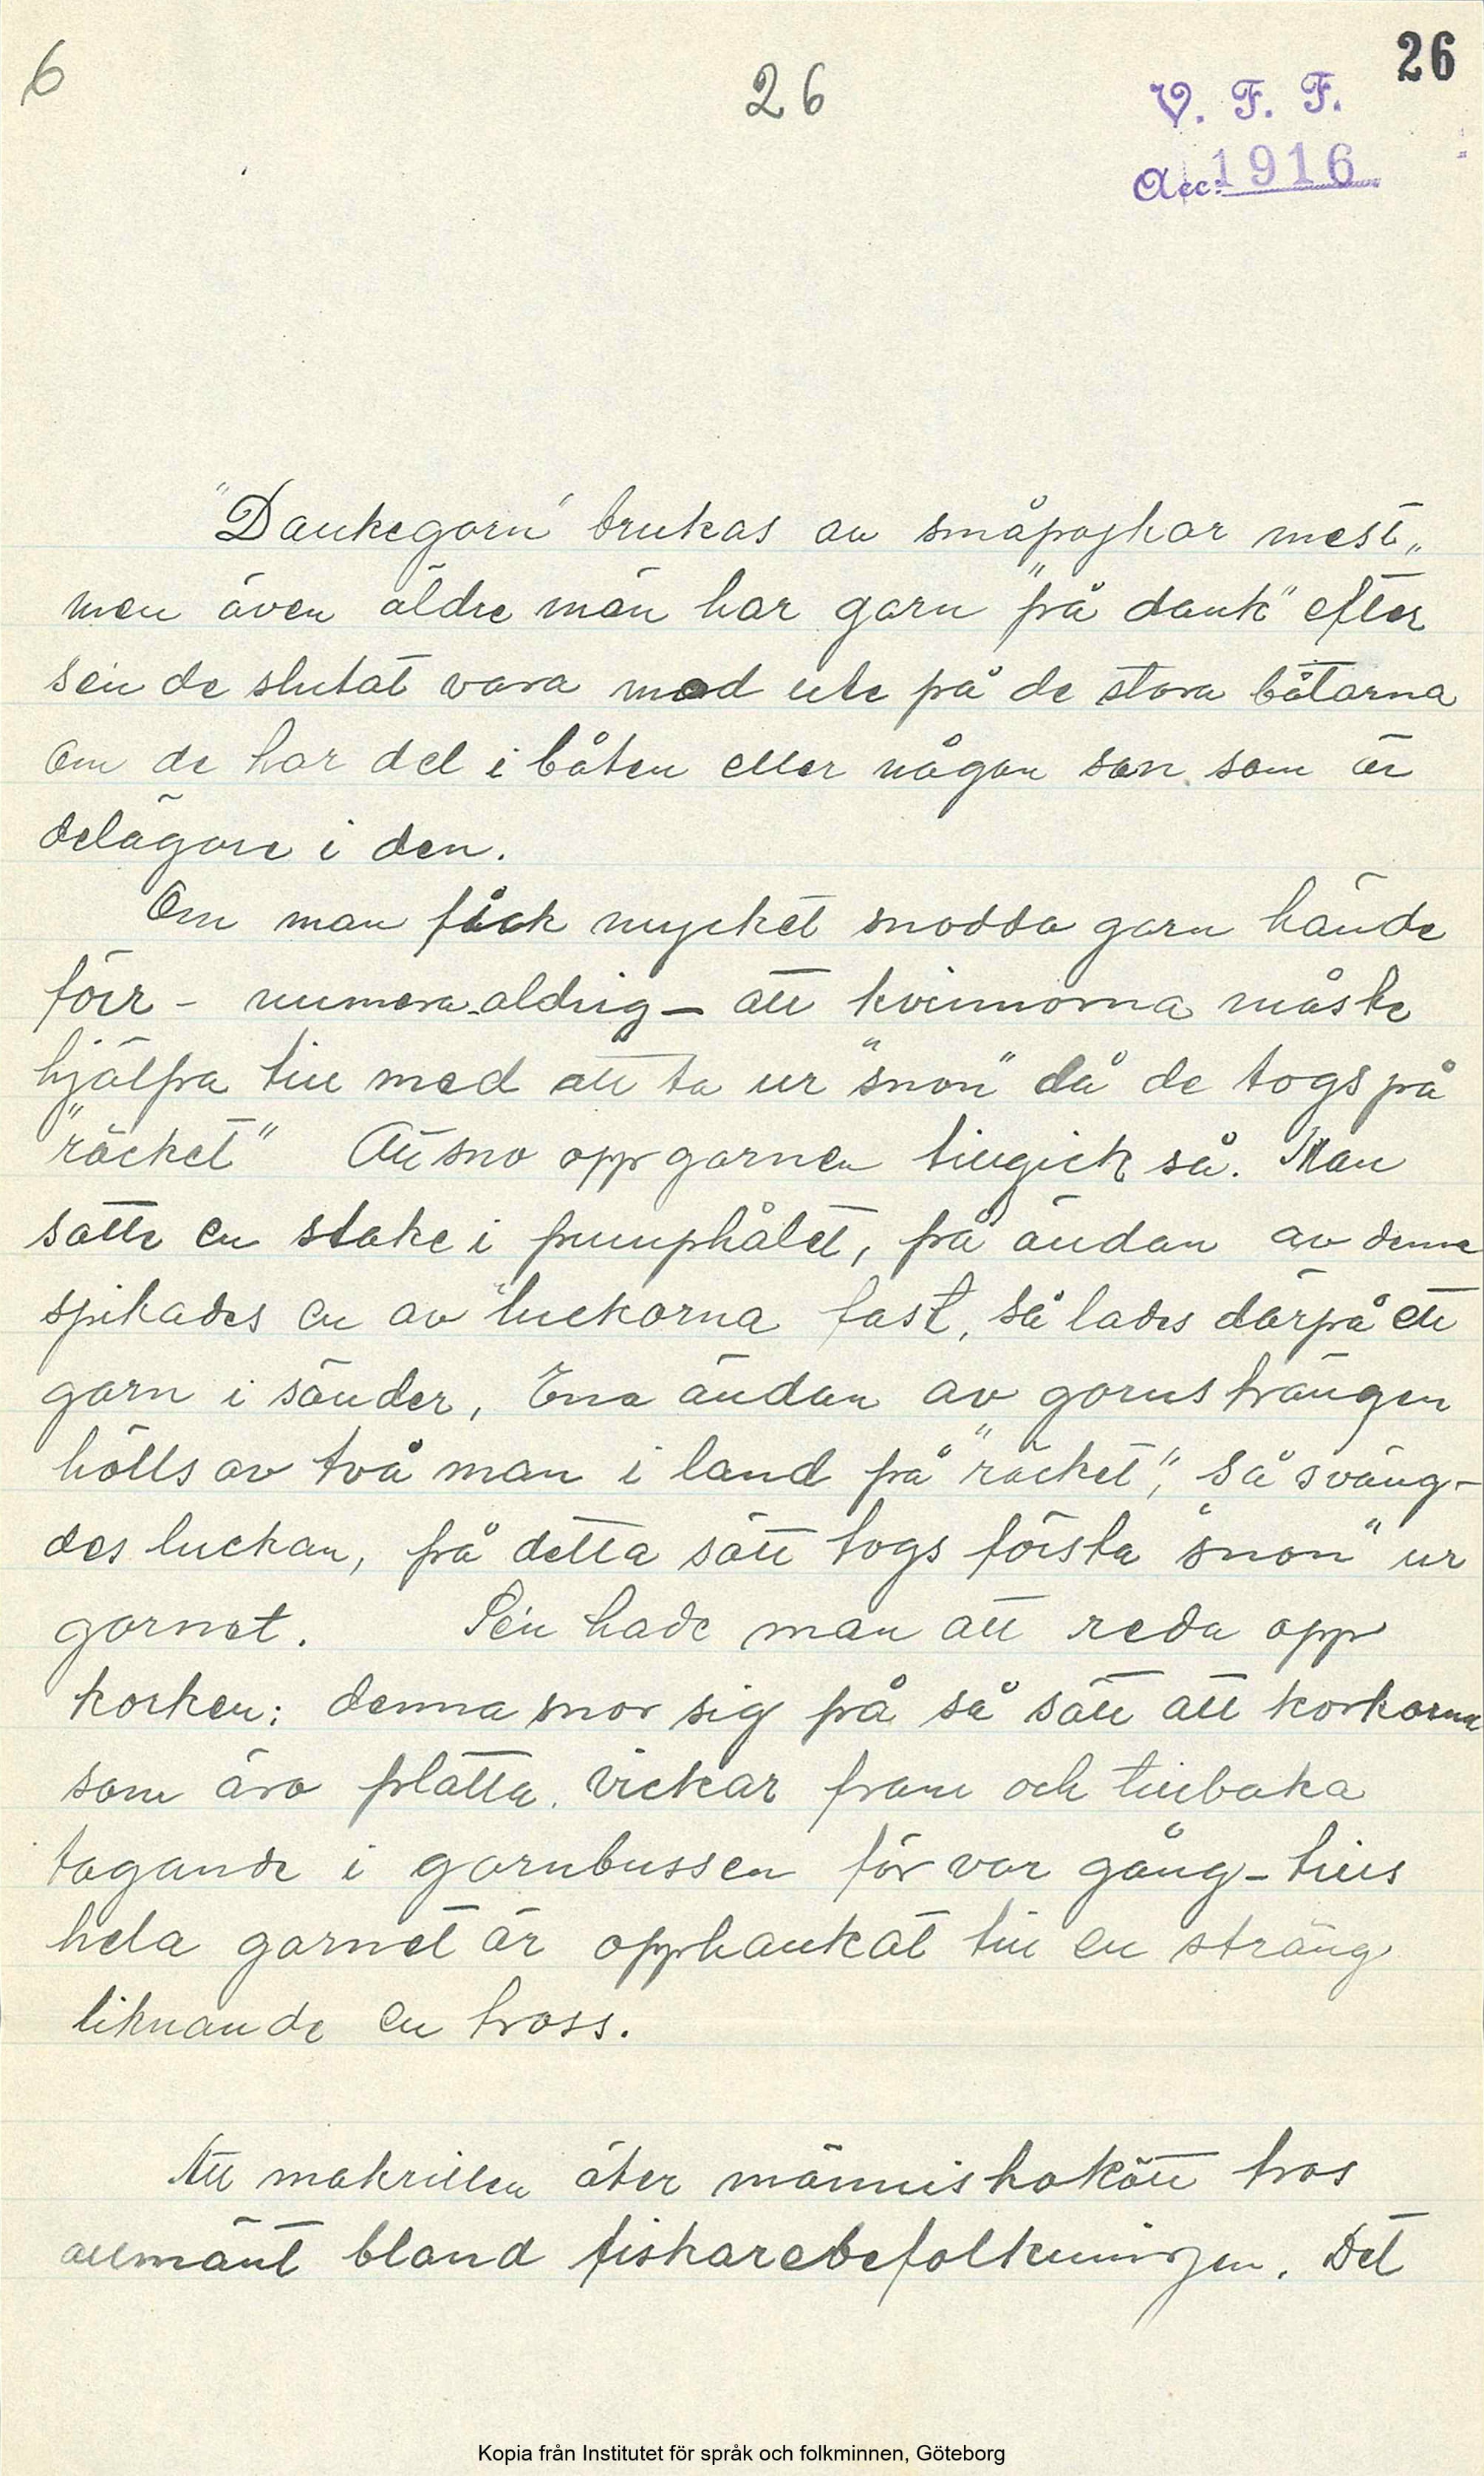 6
26
26
V. F. F.
Acc. 1916
"Dankegarn" brukas av småpojkar mest,,
men även äldre män har garn "på dank" efter
sen de slutat vara med ute på de stora båtarna
om de har del i båten eller någon son som är
delägare i den.
Om man fick mycket snodda garn hände
förr - numera aldrig - att kvinnorna måste
hjälpa till med att ta ur "snon" då de togs på
"räcket" Att sno opp garnen tillgick så. Man
satte en stake i pumphålet, på ändan av denna
spikades en av luckorna fast, så lades därpå ett
garn i sänder, Ena ändan av garnsträngen
hölls av två man i land på "räcket", så sväng-
des luckan, på detta sätt togs första "snon" ur
garnet. Sen hade man att reda opp
korken; denna snor sig på så sätt att korkarna
som äro platta vickar fram och tillbaka
tagande i garnbussen för var gång - tills
hela garnet är opphankat till en sträng
liknande en tross.
Att makrillen äter människokött tros
allmänt bland fiskarebefolkningen. Det
Kopia från Institutet för språk och folkminnen, Göteborg